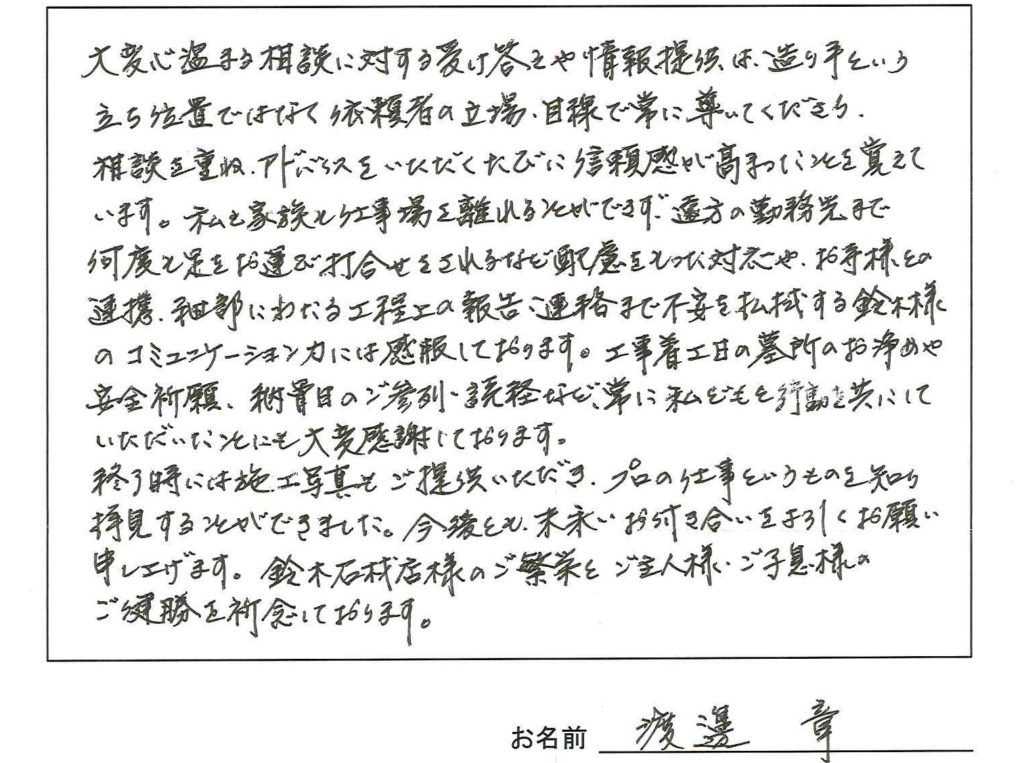 大変心温まる相談に対する受け答えや情報提供は、造り手という
立ち位置ではなく依頼者の立場、目線で常に導いてくださり、
相談を重ね、アドバイスをいただくたびに信頼感が高まったことを覚えて
います。私も家族も仕事場を離れることができず、遠方の勤務先まで
何度も足をお運び打合せをされるなど配慮をもった対応や、お寺様との
連携、細部にわたる工程上の報告・連絡まで不安を払拭する鈴木様
のコミュニケーション力には感服しております。工事着工日の墓所のお浄めや
安全祈願、納骨日のご参列・読経など、常に私どもと行動を共にして
いただいたことにも大変感謝しております。
終了時には施工写真もご提供いただき、プロの仕事というものを知り
拝見することができました。今後とも、末永いお付き合いをよろしくお願い
申し上げます。鈴木石材店様のご繁栄とご主人様・ご子息様の
ご健勝を祈念しております。
お名前 渡邊 章